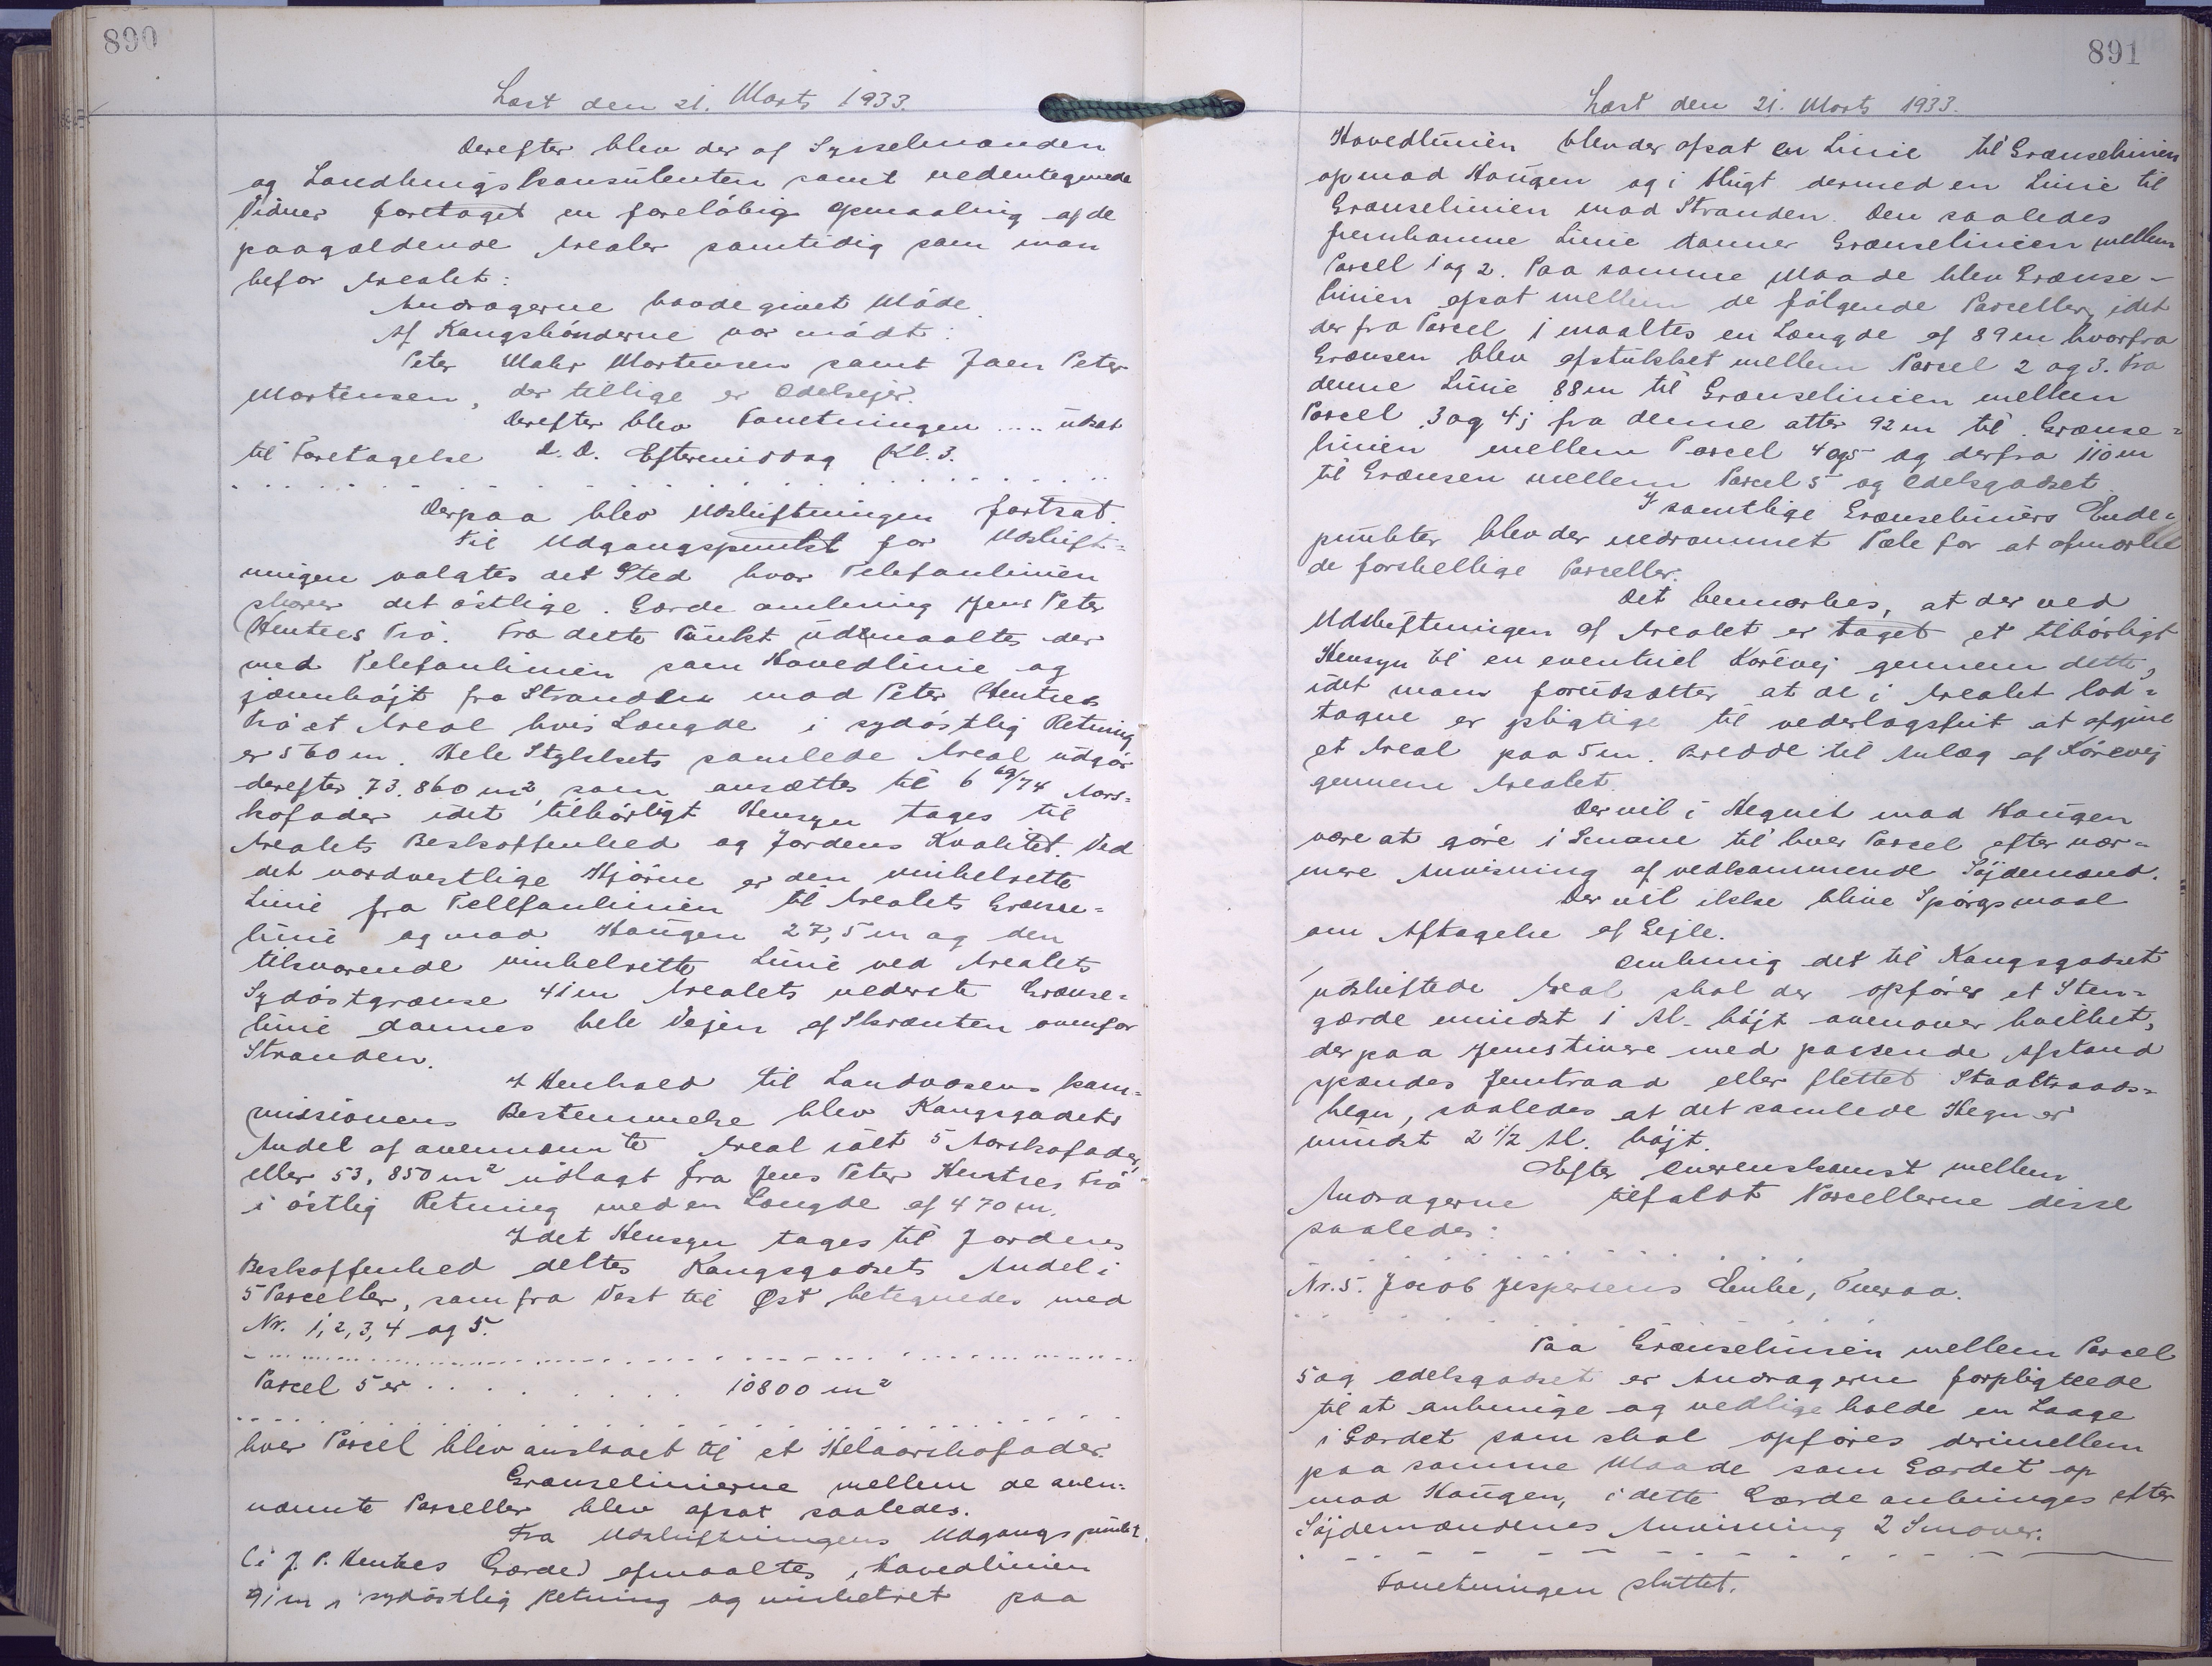 890
Læst den 21. Marts 1933.
Derefter blev der af Sysselmanden
og Landbrugskonsulenten samt nedentegnede
Vidner foretaget en foreløbig Opmaaling af de
paagældende Arealer samtidig som man
befor Arealet:
Andragerne havde givet Møde.
Af Kongsbønderne var mødt:
Peter Mohr Mortensen samt Joen Peter
Mortensen, der tillige er Odelsejer.
Derefter blev Forretningen .... udsat
til Foretagelse d.D. Eftermiddag Kl. 3.
Derpaa blev Udskiftningen fortsat.
Til Udgangspunkt for Udskift=
ningen valgtes det Sted hvor Telefonlinien
skærer det østlige Gærde omkring Jens Peter
Hentzes Trø. Fra dette Punkt udmaaltes der
med Telefonlinien som Hovedlinie og
jævnhøjt fra Stranden mod Peter Hentzes
Trø et Areal hvis Længde i sydøstlig Retning
er 560 m. Hele Stykkets samlede Areal udgør
derefter 73.860 m², som ansættes til 6 69/74 Aars=
kofoder idet tilbørligt Hensyn tages til
Arealets Beskaffenhed og Jordens Kvalitet. Ved
det nordvestlige Hjørne er den vinkelrette
Linie fra Telefonlinien til Arealets Grænse=
linie op mod Haugen 27,5 m og den
tilsvarende vinkelrette Linie ved Arealets
Sydøstgrænse 41 m Arealets nederste Grænse=
linie dannes hele Vejen af Skrænten ovenfor
Stranden.
I Henhold til Landvæsens kom=
missionens Bestemmelse blev Kongsgodsets
Andel af ovennævnte Areal ialt 5 Aarskofoder
eller 53.850 m² udlagt fra Jens Peter Hentzes Trø
i østlig Retning med en Længde af 470 m.
Idet Hensyn tages til Jordens
Beskaffenhed deltes Kongsgodsets Andel i
5 Parceller, som fra Vest til Øst betegnedes med
Nr. 1, 2, 3, 4 og 5.
Parcel 5 er . . . . . . . . 10800 m²
hver Parcel blev anslaaet til et Helaarskofoder.
Grænselinierne mellem de oven=
nævnte Parceller blev afsat saaledes.
Fra Udskiftningens Udgangspunkt
(i J. P. Hentzes Gærde) afmaaltes i Hovedlinien
91 m i sydøstlig Retning og vinkelret paa
891
Læst den 21. Marts 1933.
Hovedlinien blev der afsat en Linie til Grænselinien
op mod Haugen og i Flugt dermed en Linie til
Grænselinien mod Stranden. Den saaledes
fremkomne Linie danner Grænselinien mellem
Parcel 1 og 2. Paa samme Maade blev Grænse-
linien afsat mellem de følgende Parceller, idet
der fra Parcel 1 maaltes en Længde af 89 m hvorfra
Grænsen blev afstukket mellem Parcel 2 og 3. Fra
denne Linie 88 m til Grænselinien mellem
Parcel 3 og 4; fra denne atter 92 m til Grænse=
linien mellem Parcel 4 og 5 og derfra 110 m
til Grænsen mellem Parcel 5 og Odelsgodset
I samtlige Grænseliniers Ende=
punkter blev der nedrammet Pæle for at afmærke
de forskellige Parceller.
Det bemærkes, at der ved
Udskiftningen af Arealet er taget et tilbørligt
Hensyn til en eventuel Kørevej gennem dette,
idet man forudsætter at de i Arealet lod=
tagne er pligtige til vederlagsfrit at afgive
et Areal paa 5 m. Bredde til Anlæg af Kørevej
gennem Arealet.
Der vil i Hegnet mod Haugen
være at gøre 1 Smøve til hver Parcel efter nær=
mere Anvisning af vedkommende Søjdemænd.
Der vil ikke blive Spørgsmaal
om Aftagelse af Sejle.
Omkring det til Kongsgodset
udskiftede Areal skal der opføres et Sten=
gærde mindst 1 Al. højt ovenover hvilket,
der paa Jernstivere med passende Afstand
spændes Jerntraad eller flettet Staaltraads=
hegn, saaledes at det samlede Hegn er
mindst 2 1/2 Al. højt.
Efter Overenskomst mellem
Andragerne tilfaldt Parcellerne disse
saaledes:
Nr. 5. Jacob Jespersens Enke, Tveraa.
Paa Grænselinien mellem Parcel
5 og Odelsgodset er Andragerne forpligtede
til at anbringe og vedlige holde en Laage
i Gærdet som skal opføres derimellem
paa samme Maade som Gærdet op
mod Haugen, i dette Gærde anbringes efter
Søjdemændenes Anvisning 2 Smøver.
Forretningen sluttet.